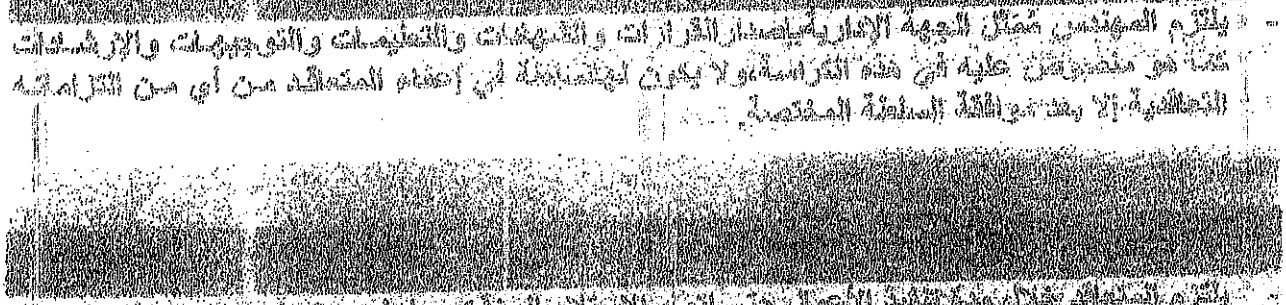 - يلتزم المهندس ممثل الجهة الإدارية بإصدار القرارات والشهادات والتعليمات والتوجيهات والإرشادات
كما هو منصوص عليه في هذه الكراسة، ولا يكون له سلطة في إعفاء المتعاقد من أي من التزاماته
التعاقدية إلا بعد موافقة السلطة المختصة.